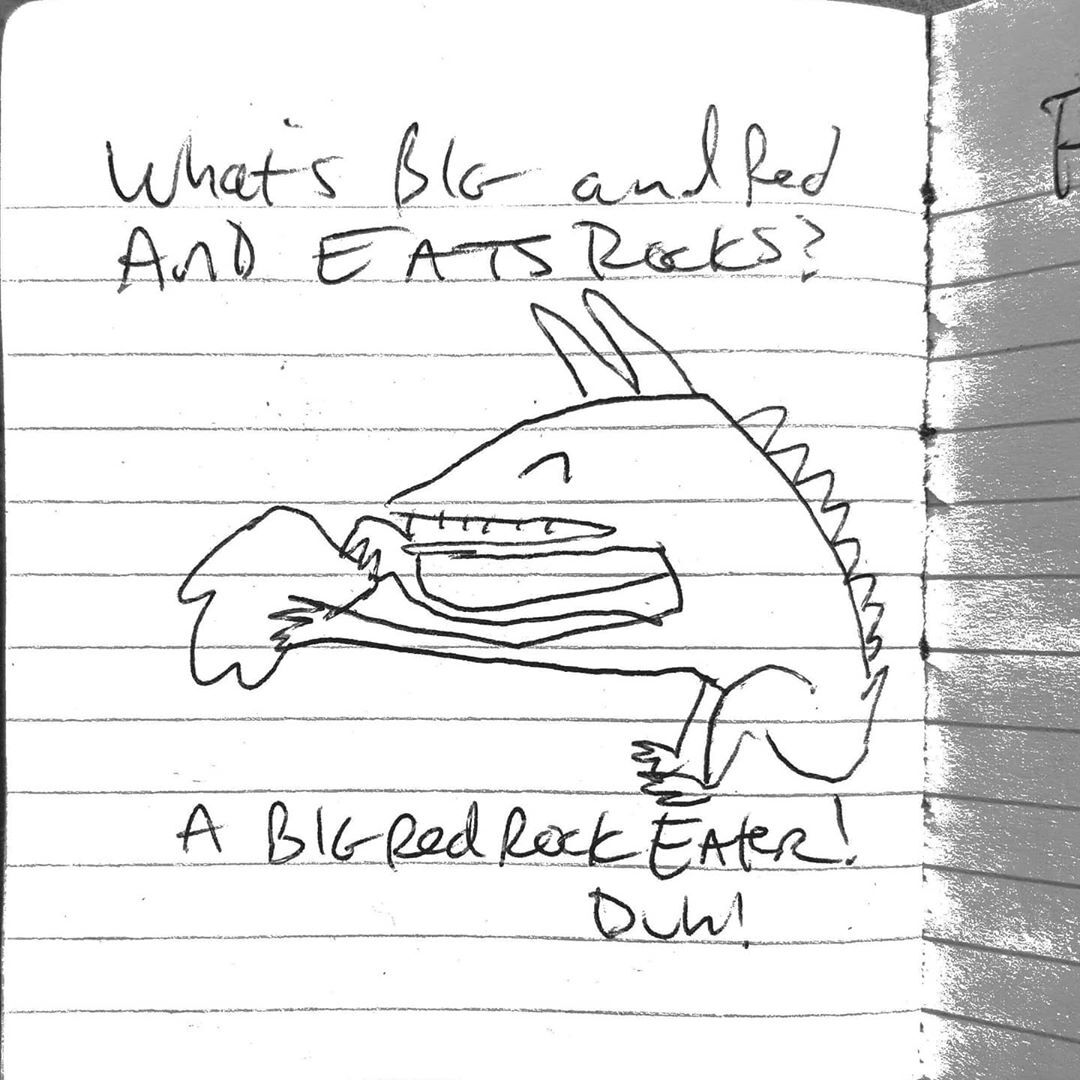 What's BIG and Red
AnD EATS Rocks?
A BIG Red Rock EAteR!
Duh!